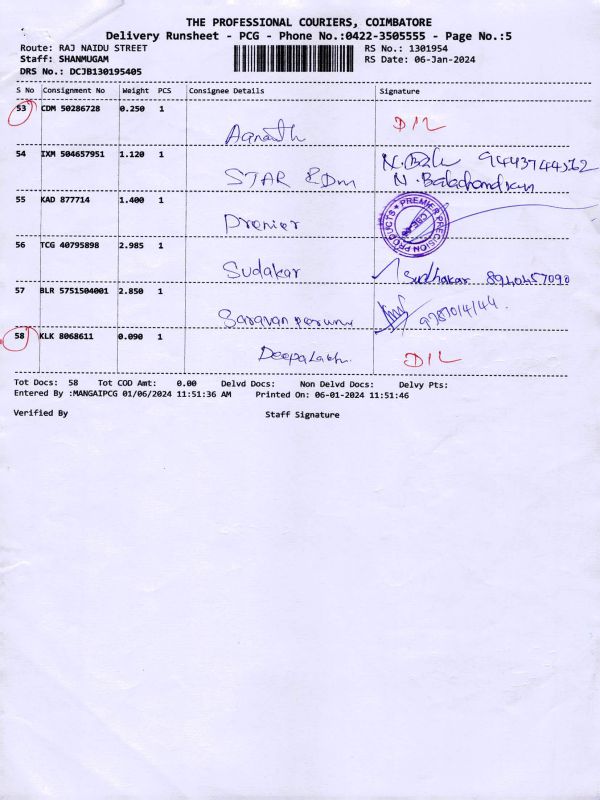 THE PROFESSIONAL COURIERS, COIMBATORE
Delivery Runsheet - PCG - Phone No.:0422-3505555 - Page No.:5
Route: RAJ NAIDU STREET
RS No.: 1301954
Staff: SHANMUGAM
RS Date: 06-Jan-2024
DRS No.: DCJB130195405
S No Consignment No Weight PCS Consignee Details Signature
53 CDM 50286728 0.250 1
D/L
54 IXM 504657951 1.120 1
STAR EDm N. Balachandran
55 KAD 877714 1.400 1
Premier PREMIER PRECISION PRODUCTS CBE
56 TCG 40795898 2.985 1
Sudakar Sudhakar
57 BLR 5751504001 2.850 1
58 KLK 8068611 0.090 1
D/L
Tot Docs: 58 Tot COD Amt: 0.00 Delvd Docs: Non Delvd Docs: Delvy Pts:
Entered By :MANGAIPCG 01/06/2024 11:51:36 AM Printed On: 06-01-2024 11:51:46
Verified By Staff Signature